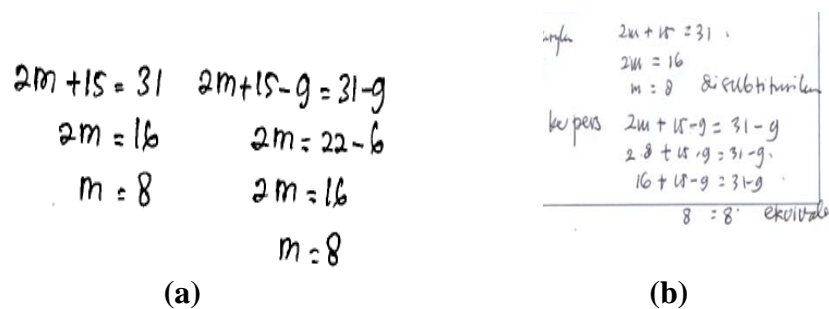 2m + 15 = 31
2m = 16
m = 8
2m + 15 - 9 = 31 - 9
2m = 22 - 6
2m = 16
m = 8
(a)
2m + 15 = 31
2m = 16
m = 8 disubtitusikan
ke pers 2m + 15 - 9 = 31 - 9
2.8 + 15 - 9 = 31 - 9
16 + 15 - 9 = 31 - 9
8 = 8 ekuivale
(b)